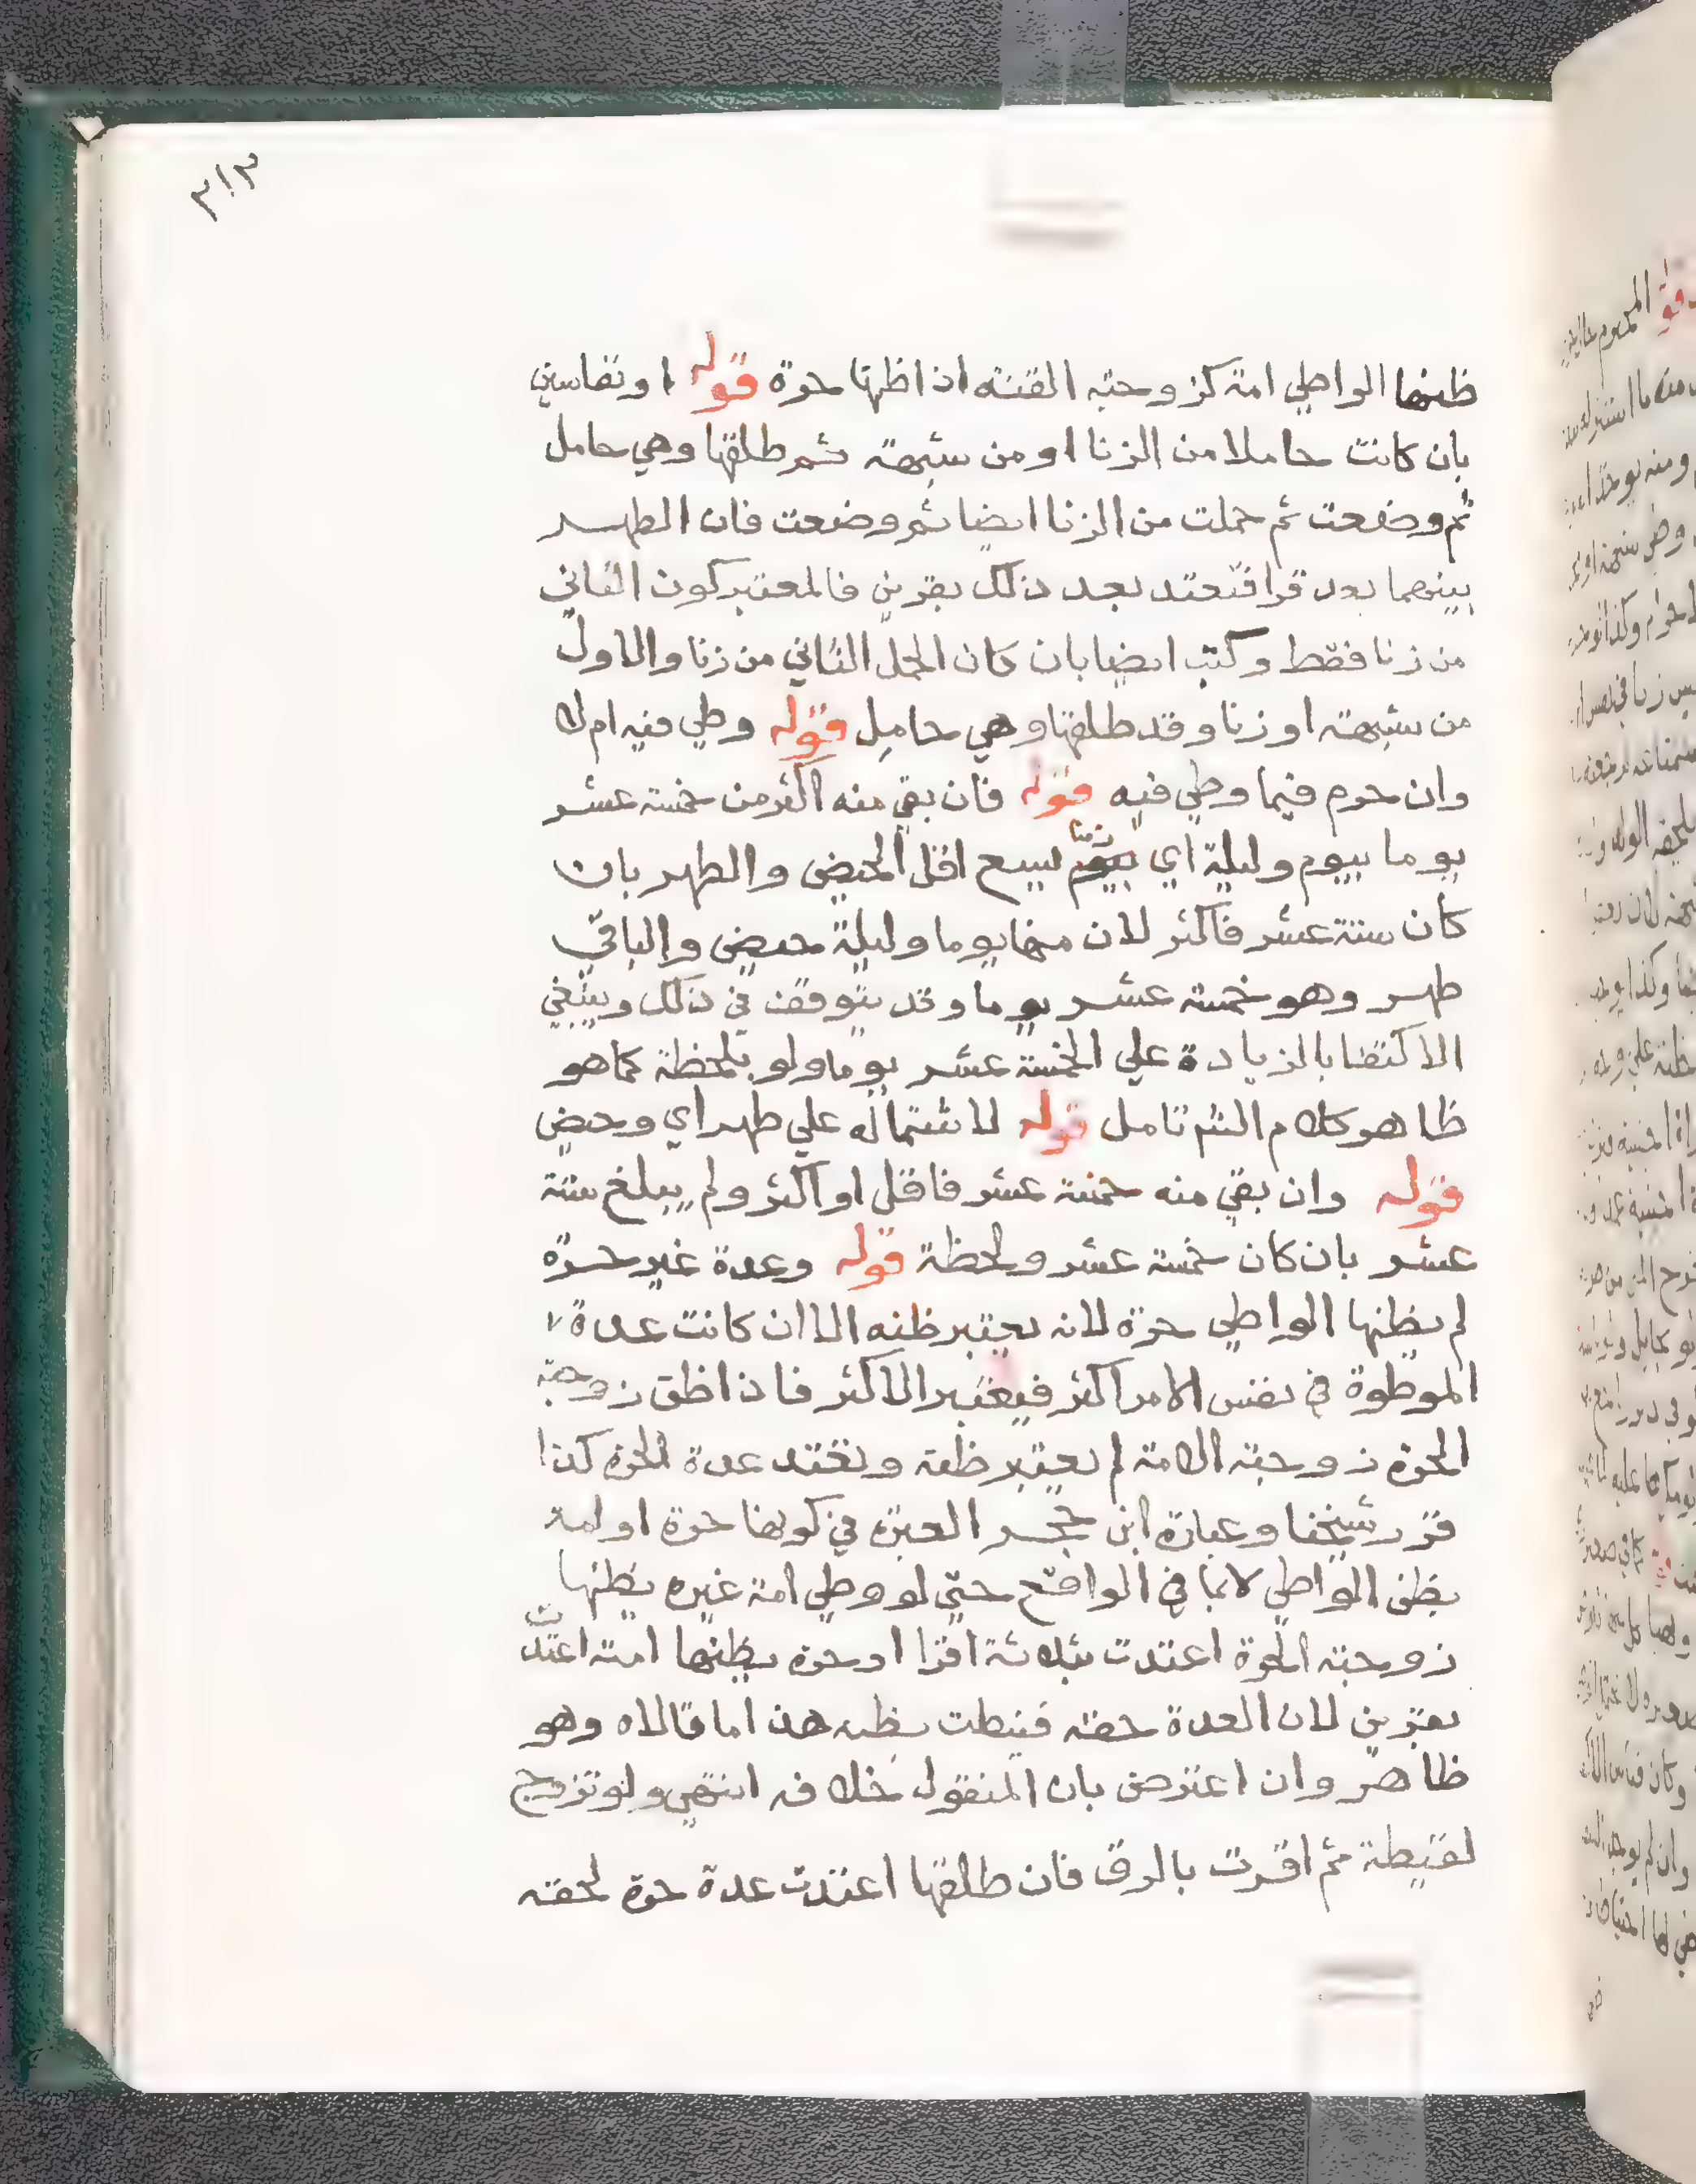 ٣١٣
ظنها الواطي امة كزوجته القنة اذا ظنها حرة قوله او نفاسين
بان كانت حاملا من الزنا او من شبهة ثم طلقها وهي حامل
ثم وضعت ثم حملت من الزنا ايضا ثم وضعت فان الطهر
بينهما يعد قرا فتعتد بعد ذلك بقرين فالمعتبر كون الثاني
من زنا فقط وكتب ايضا بان كان الحمل الثاني من زنا والاول
من شبهة او زنا وقد طلقها وهي حامل قوله وطي فيه ام لا
وان حرم فيما وطي فيه قوله فان بقي منه اكثر من خمسة عشر
يوما بيوم وليلة اي زمنا يسع اقل الحيض والطهر بان
كان ستة عشر فاكثر لان منها يوما وليلة حيض والباقي
طهر وهو خمسة عشر يوما وقد يتوقف في ذلك وينبغي
الاكتفا بالزيادة علي الخمسة عشر يوما ولو بلحظة كما هو
ظاهر كلام الشم تامل قوله لاشتماله علي طهر اي وحيض
قوله وان بقي منه خمسة عشر فاقل او اكثر ولم يبلغ ستة
عشر بان كان خمسة عشر ولحظة قوله وعدة غير حرة
لم يظنها الواطي حرة لانه يعتبر ظنه الا ان كانت عدة
الموطوة في نفس الامر اكثر فيعتبر الاكثر فاذا ظن زوجته
الحرة زوجته الامة لم يعتبر ظنه وتعتد عدة الحرة كذا
قرر شيخنا وعبارة ابن حجر العبرة في كونها حرة او امة
بظن الواطي لا بما في الواقع حتي لو وطي امة غيره يظنها
زوجته الحرة اعتدت بثلاثة اقرا او حرة يظنها امته اعتدت
بقرين لان العدة حقه فنيطت بظنه هذا ما قالاه وهو
ظاهر وان اعترض بان المنقول خلافه انتهي ولو تزوج
لقيطة ثم اقرت بالرق فان طلقها اعتدت عدة حرة لحقه